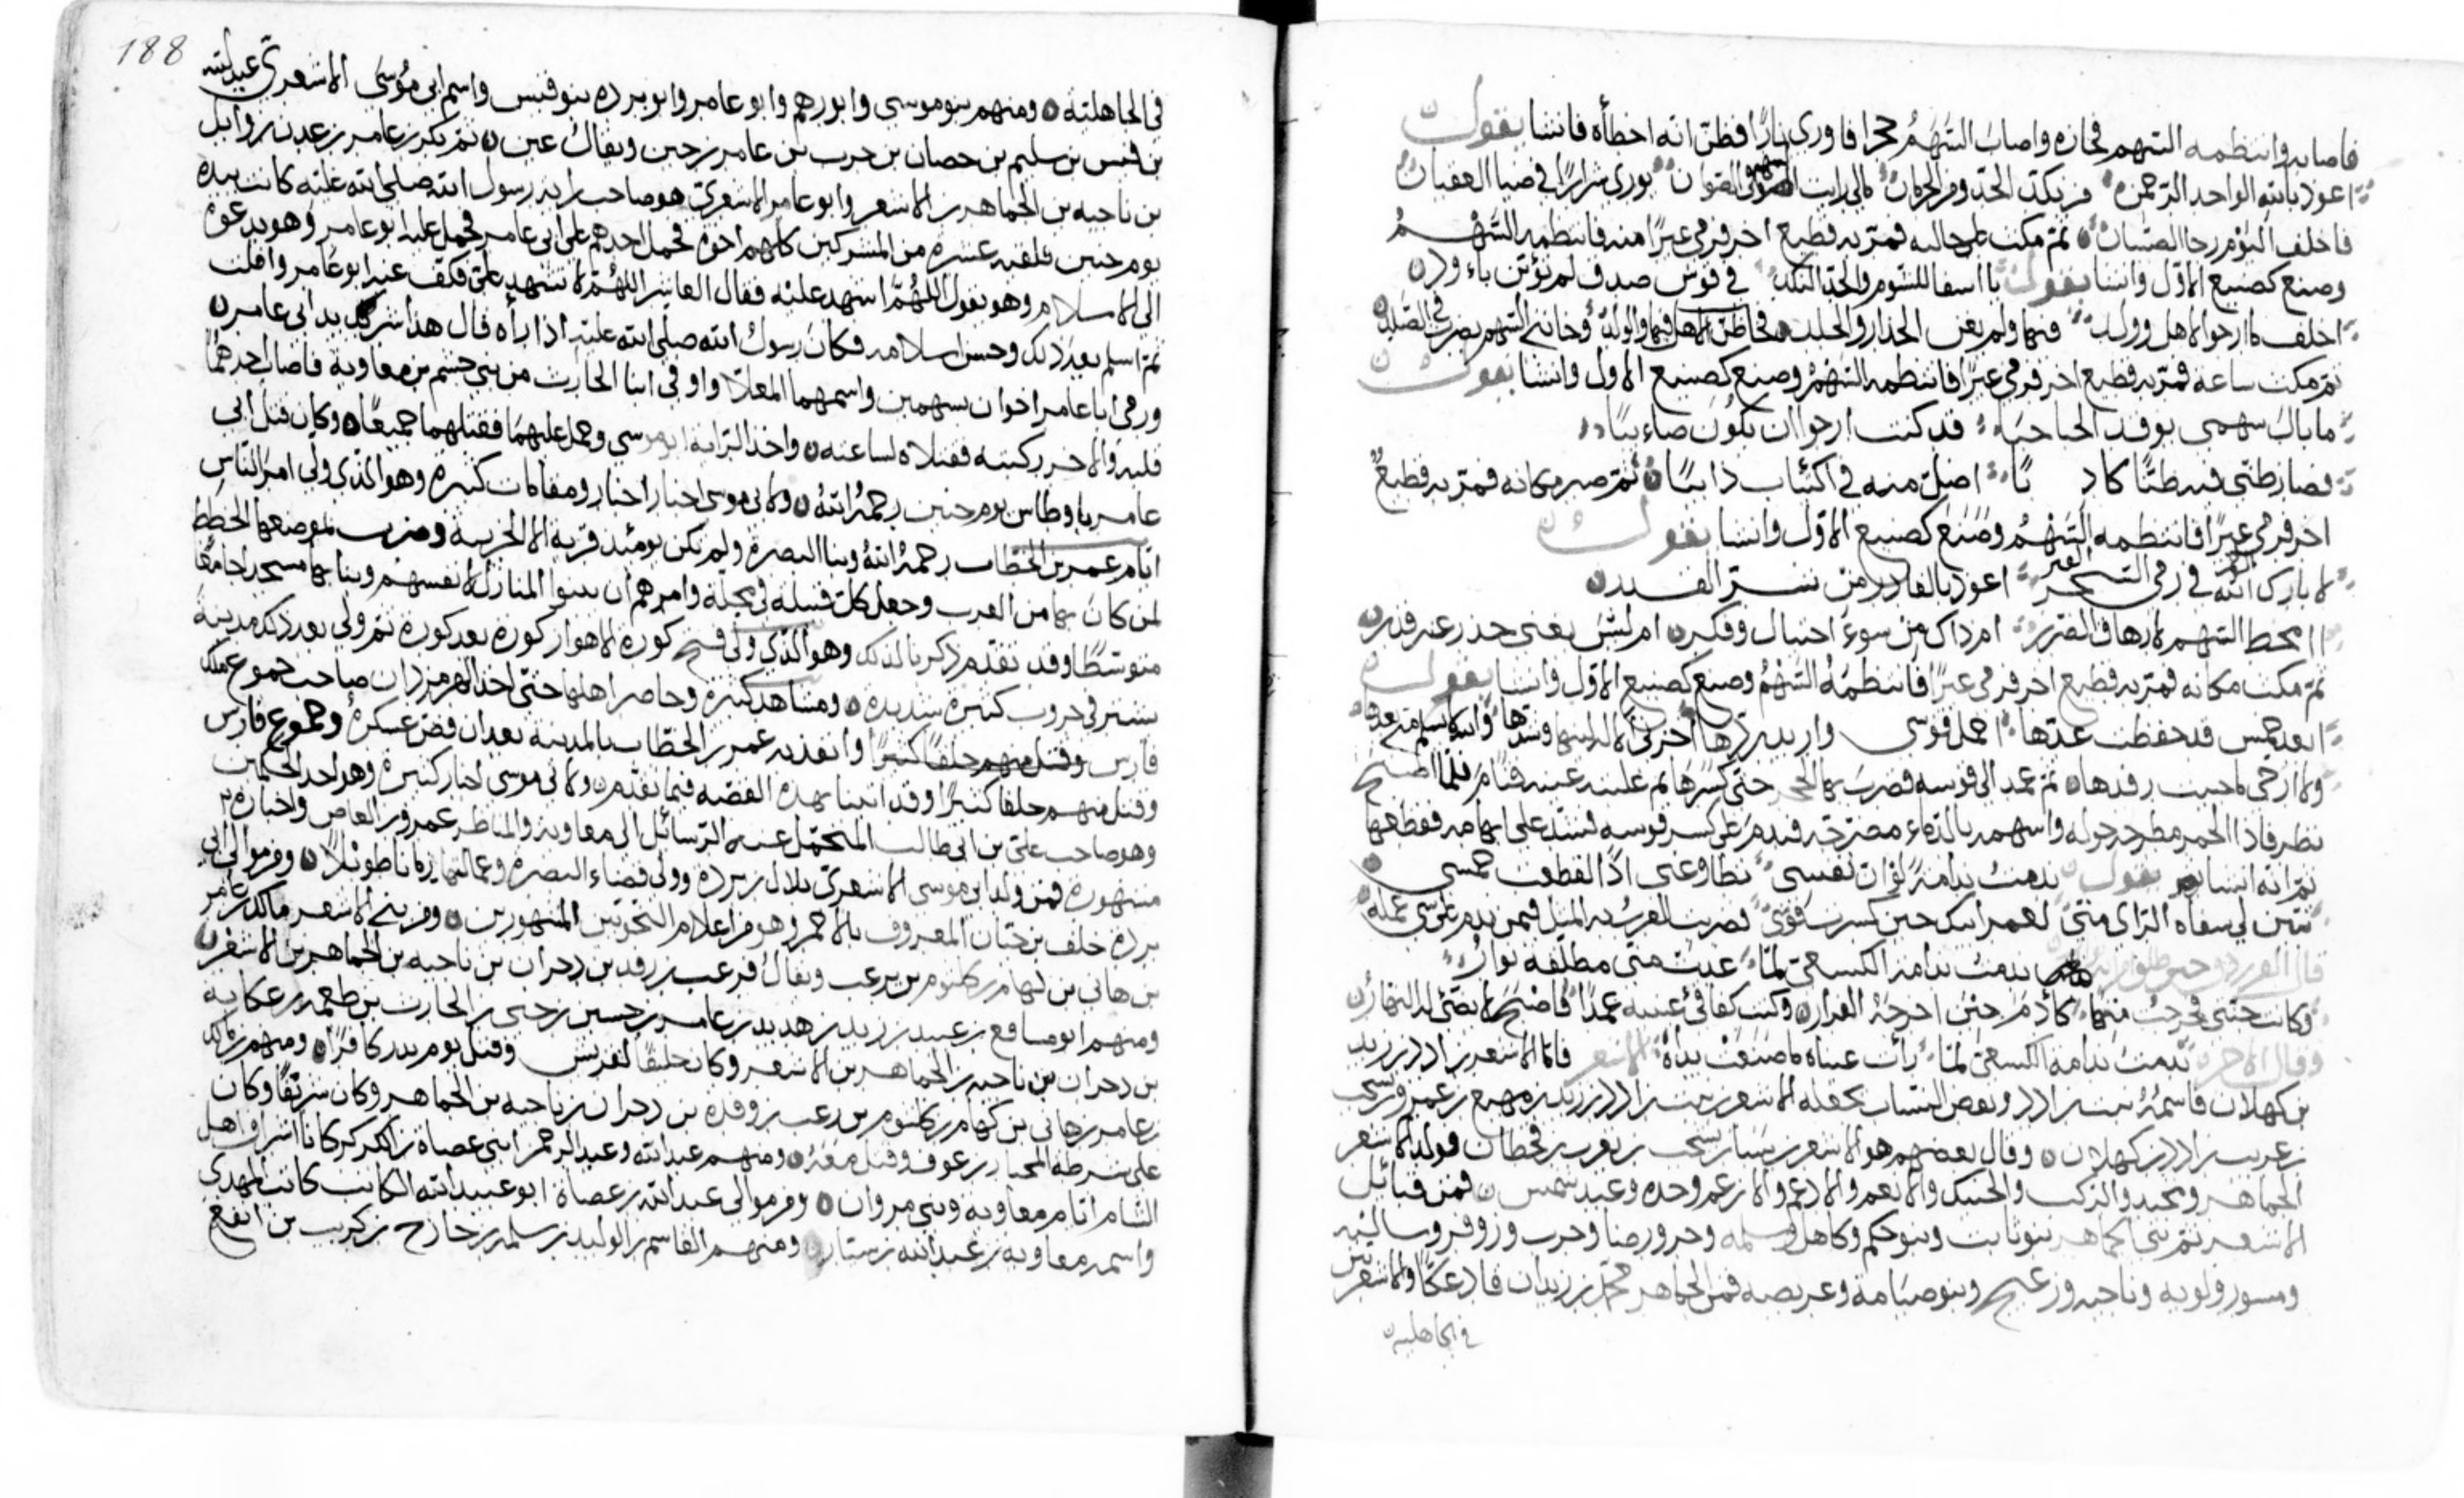 فاصابه وانتظمه السهم فجازه واصاب السهم حجرا فاورى نارا فظن انه اخطأه فانشا يقول
اعوذ بالله الواحد الرحمن من نكد الجد ومن الحرمان مالي رايت السهم فوق الصوان يوري شرارا في ضيا العقيان
فاخلف اليوم رجا الصبيان ثم مكث على حاله فمر به قطيع اخر فرمى عيرا منه فانتظمه السهم
وصنع كصنيع الاول وانشا يقول يا اسفا للشوم والجد النكد في قوس صدق لم تؤتن باود
اخلف ما ارجو لاهل وولد فيها ولم يغن الحذار والجلد فخاب ظن الاهل فيها والولد
ثم مكث ساعة فمر به قطيع اخر فرمى عيرا فانتظمه السهم وصنع كصنيع الاول وانشا يقول
ما بال سهمي يوقد الحباحبا قد كنت ارجو ان يكون صائبا
فصار ظني فيه ظنا كاذبا اضل منه في اكتئاب دائبا ثم صبر مكانه فمر به قطيع
اخر فرمى عيرا فانتظمه السهم وصنع كصنيع الاول وانشا يقول
لا بارك الله في رمي القتر اعوذ بالقادر من شر القدر
اامخط السهم لارهاق الضرر ام ذاك من سوء احتيال وفكر ام ليس يغني حذر عند قدر
ثم مكث مكانه فمر به قطيع اخر فرمى عيرا فانتظمه السهم وصنع كصنيع الاول وانشا يقول
ابعد خمس قد حفظت عدها احمل قوسي واريد ردها اخزى الاله لينها وشدها والله لا تسلم مني بعدها
ولا ارجى ما حييت رفدها ثم عمد الى قوسه فضرب بها الحجر حتى كسرها ثم غلبته عينه فنام فلما اصبح
نظر فاذا الحمر مطرحة حوله واسهمه بالدماء مضرجة فندم على كسر قوسه فشد على ابهامه فقطعها
ثم انه انشا يقول ندمت ندامة لو ان نفسي تطاوعني اذا لقطعت خمسي
تبين لي سفاه الراي مني لعمر ابيك حين كسرت قوسي فضربت العرب به المثل فيمن يندم على شي عمله
قال الفرزدق حين طلق ندمت ندامة الكسعي لما غدت مني مطلقة نوار
وكانت جنتي فخرجت منها كادم حين اخرجه الفرار وكنت كفاقئ عينيه عمدا فاصبح لا يضئ له النهار
وقال الاخر ندمت ندامة الكسعي لما رأت عيناه ما صنعت يداه الاشعر فاما الاشعر بن ادد بن زيد
بن كهلان فاسمه نبت بن ادد وبعض النساب يجعله الاشعر بن نبت بن ادد بن زيد بن مهسع بن عمرو بن يشجب
بن عريب بن ادد بن كهلان وقال بعضهم هو الاشعر بن سبا بن يشجب بن يعرب بن قحطان فولد الاشعر
الجماهر والحنيك والانعم والادعم والارغم وجده وعبد شمس فمن قبائل
الاشعر ثم بني الجماهر بنو ثابت وبنو حكم وكاهل وسلمه
وناجيه وبنو صنامه وعريصه فمن الجماهر محمد بن زيدان قاد عكا والاشعرين
في الجاهليه
188
في الجاهلية ومنهم بنو موسى وابو رهم وابو عامر وابو بردة بنو قيس واسم ابي موسى الاشعري عبد الله
بن قيس بن سليم بن حصان بن حرب بن عامر بن ويقال عين ثم بكر بن عامر بن عدي بن وائل
بن ناجيه بن الجماهر بن الاشعر وابو عامر الاشعري هو صاحب راية رسول الله صلى الله عليه كانت بيده
يوم حنين فلقيه عشرة من المشركين كلهم اخوة فحمل احدهم على ابي عامر فحمل عليه ابو عامر وهو يدعوه
الى الاسلام وهو يقول اللهم اشهد عليه فقال العاشر اللهم لا تشهد علي فكف عنه ابو عامر وافلت
ثم اسلم بعد ذلك وحسن اسلامه فكان رسول الله صلى الله عليه اذا رأه قال هذا شريد ابي عامر
ورمى ابا عامر اخوان بسهمين واسمهما العلا واوفى ابنا الحارث من بني جشم بن معاوية فاصاب احدهما
قلبه والاخر ركبته فقتلاه لساعته واخذ الراية ابو موسى وحمل عليهما فقتلهما جميعا وكان قتل ابي
عامر باوطاس يوم حنين رحمه الله ولابي موسى اخبار ومقامات كثيرة وهو الذي ولي امر الناس
ايام عمر بن الخطاب رحمه الله وبنا البصرة ولم تكن يومئذ قرية الا الخريبة وضرب لموضعها الخطط
لمن كان بها من العرب وجعل كل قبيلة في محلة وامرهم ان يبنوا المنازل لانفسهم وبنا بها مسجدا جامعا
متوسطا وقد تقدم ذكرنا لذلك وهو الذي ولي فتح كورة الاهواز كورة بعد كورة ثم ولي بعد ذلك مدينة
تستر في حروب كثيرة شديدة ومشاهد كثيرة وحاصر اهلها حتى اخذ الهرمزدان صاحب جموع ملك
فارس وقتل منهم خلقا كثيرا وانفذ به عمر بن الخطاب بالمدينة بعد ان فض عسكره وجموع فارس
وقتل منهم خلقا كثيرا وقد اتينا بهذه القصة فيما تقدم ولابي موسى اخبار كثيرة وهو احد الحكمين
وهو صاحب علي بن ابي طالب المتحمل عنه الرسائل الى معاوية والمناظر عمرو بن العاص واخباره
مشهورة فمن ولد ابي موسى الاشعري بلال بن بردة وولي قضاء البصرة وعمالتها زمانا طويلا ومن موالي ابي
بردة خلف بن حيان المعروف بالاحمر وهو من اعلام النحويين المشهورين ومن بني الاشعر مالك بن عامر
بن هاني بن بن كلثوم بن برعب ويقال قرعب بن رفد بن دحران بن ناجيه بن الجماهر بن الاشعر
ومنهم ابو مسافع بن عبيد بن زيد بن هديد بن عامر
بن دحران بن ناجيه بن الجماهر بن الاشعر وكان حليفا لقريش وقتل يوم بدر كافرا ومنهم مالك
بن عامر بن هاني بن بن كلثوم بن دحران بن ناجيه بن الجماهر وكان شريفا وكان
على شرطة المختار بن عوف وقتل معه ومنهم عبد الله وعبد الرحمن ابني عصاه بن الكركر كانا اشراف اهل
الشام ايام معاويه وبني مروان ومن موالي عبد الله بن عصاه ابو عبيد الله الكاتب كاتب المهدي
واسمه معاويه بن عبد الله بن يسار ومنهم القاسم بن الوليد بن سلمه بن كريب بن